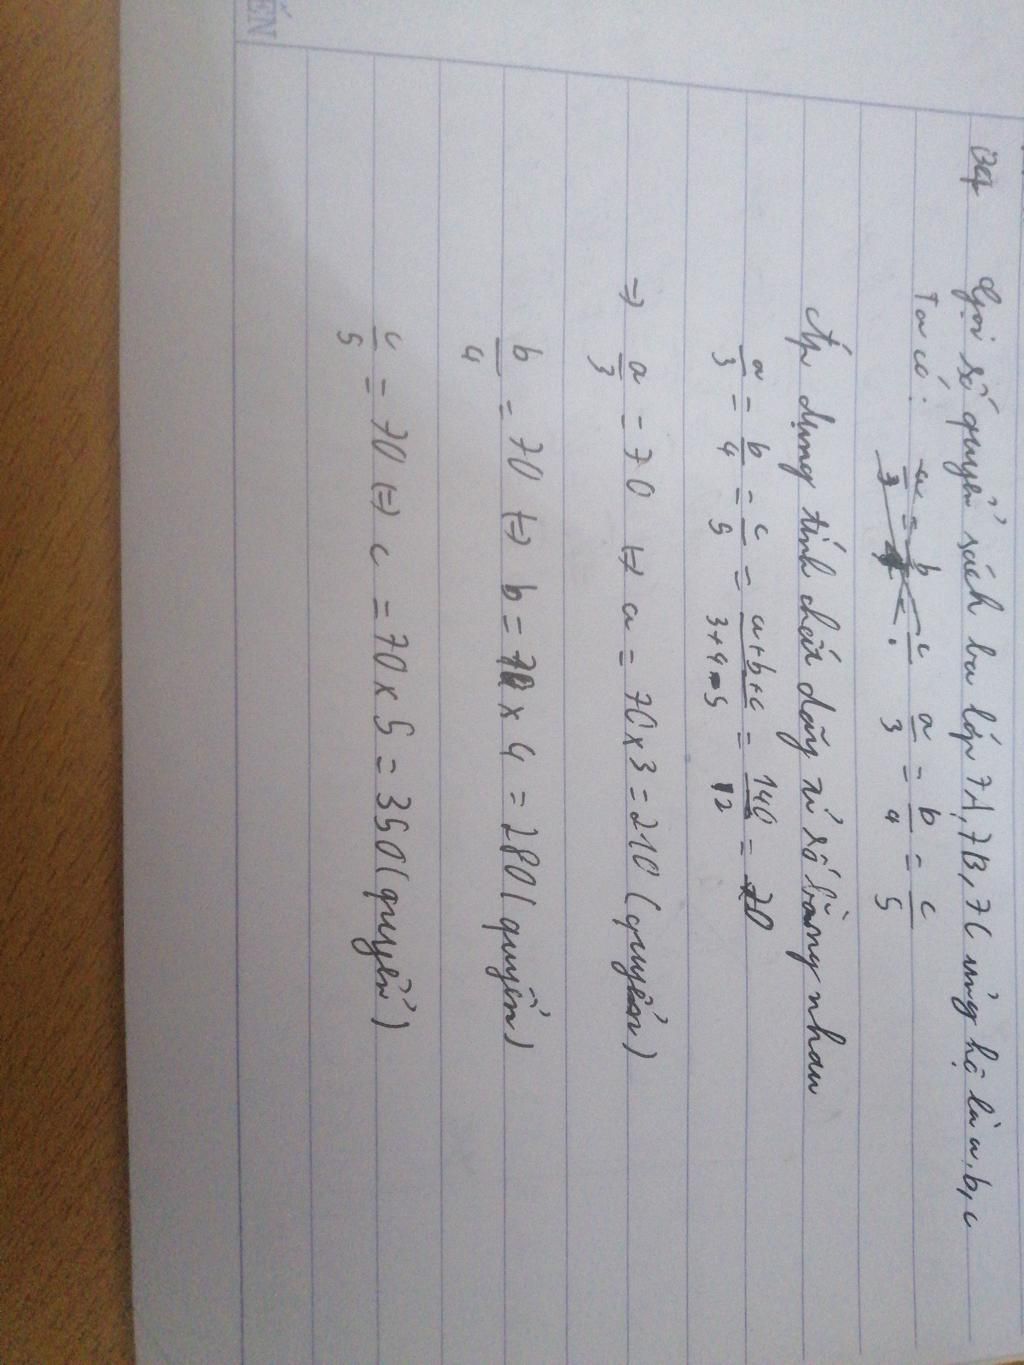 ẾN
B4
Gọi số quyển sách ba lớp 7A, 7B, 7C ủng hộ là a, b, c
Ta có: a/3 = b/4 = c/5
Áp dụng tính chất dãy tỉ số bằng nhau
a/3 = b/4 = c/5 = a+b+c/3+4+5 = 140/12 = 70
=> a/3 = 70 => a = 70 x 3 = 210 (quyển)
b/4 = 70 => b = 70 x 4 = 280 (quyển)
c/5 = 70 => c = 70 x 5 = 350 (quyển)